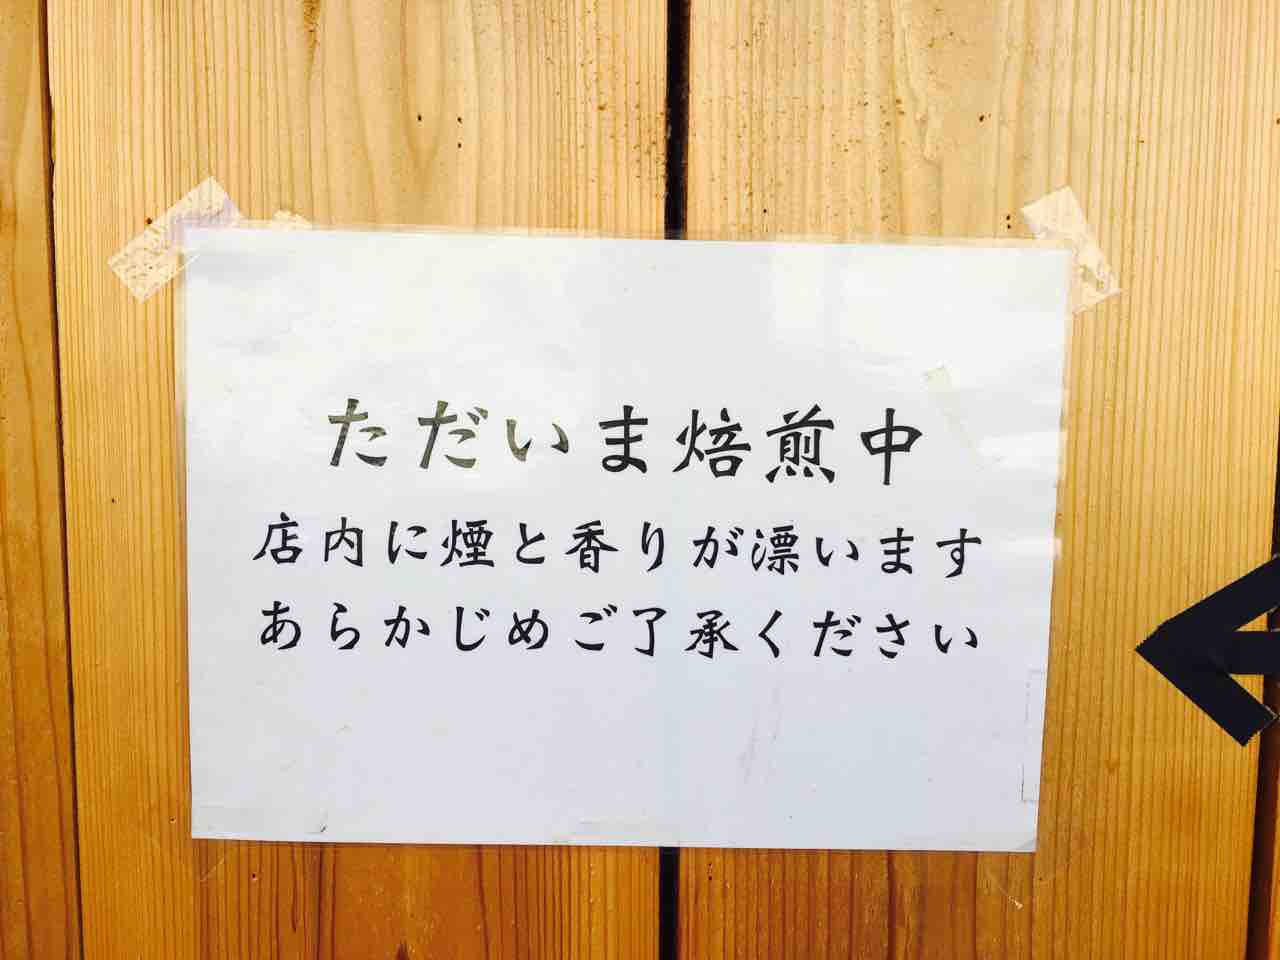 ただいま焙煎中
店内に煙と香りが漂います
あらかじめご了承ください